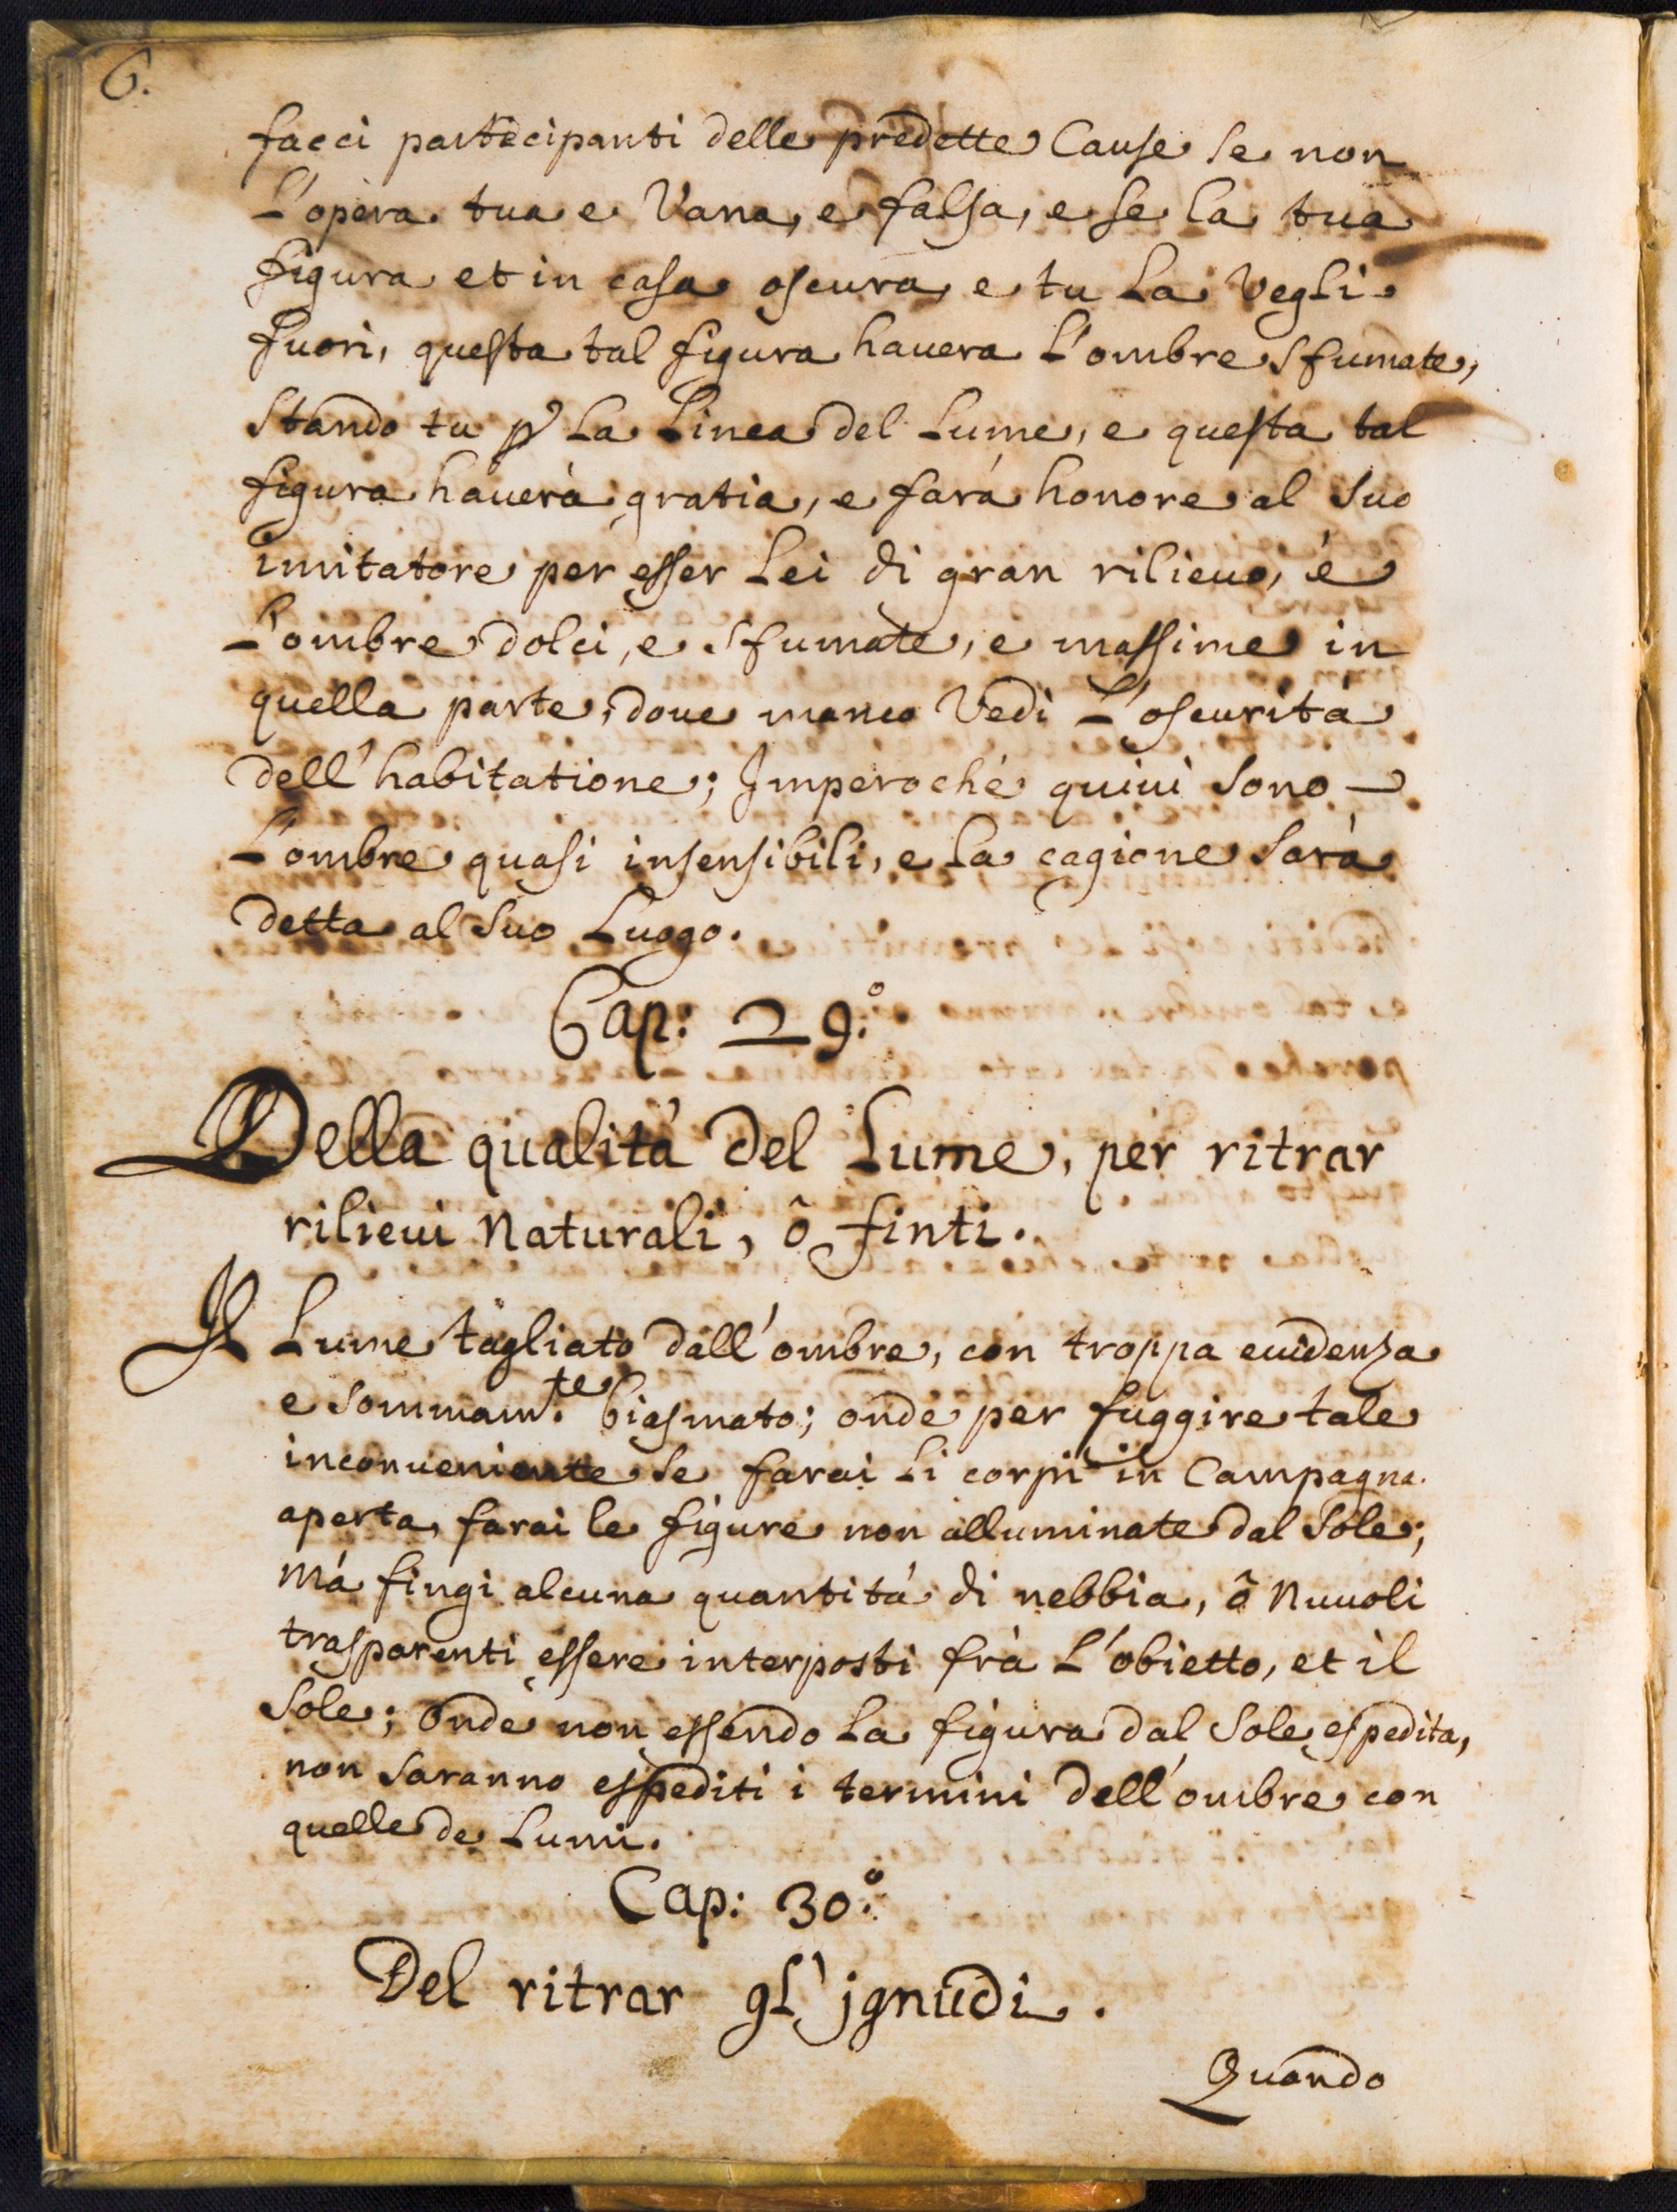 6.
facci partecipanti delle predette Cause se non
L'opera tua e Vana, e falsa, e se la tua
figura et in casa oscura, e tu La Vegli
fuori, questa tal figura hauera L'ombre sfumate,
Stando tu p La Linea del Lume, e questa tal
figura hauerà gratia, e farà honore al Suo
imitatore per esser Lei di gran rilieuo, è
L'ombre dolci, e sfumate, e massime in
quella parte, doue manco Vedi L'oscurità
dell'habitatione; Imperoche quiui Sono
L'ombre quasi insensibili, e La cagione Sarà
detta al Suo Luogo.
Cap: 29.º
Della qualità del Lume, per ritrar
rilieui Naturali, ò finti.
Il Lume tagliato dall'ombre, con troppa euidenza
e Sommam.te biasmato; onde per fuggire tale
inconueniente Se farai Li corpi in Campagna
aperta, farai le figure non alluminate dal Sole;
mà fingi alcuna quantità di nebbia, ô Nuuoli
trasparenti essere interposti frà L'obietto, et il
Sole; Onde non essendo La figura dal Sole espedita,
non Saranno espediti i termini dell'ombre con
quelle de Lumi.
Cap: 30.º
Del ritrar gL'jgnudi.
Quando